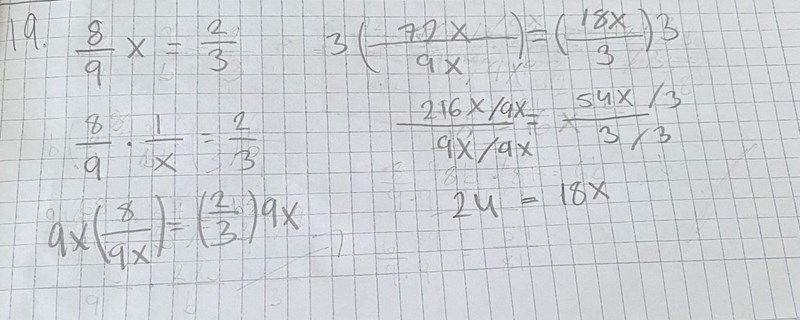 19. 8/9 x = 2/3
8/9 · 1/x = 2/3
9x(8/9x) = (2/3)9x
3(72x/9x) = (18x/3)3
216x/9x / 9x/9x = 54x/3 / 3/3
24 = 18x